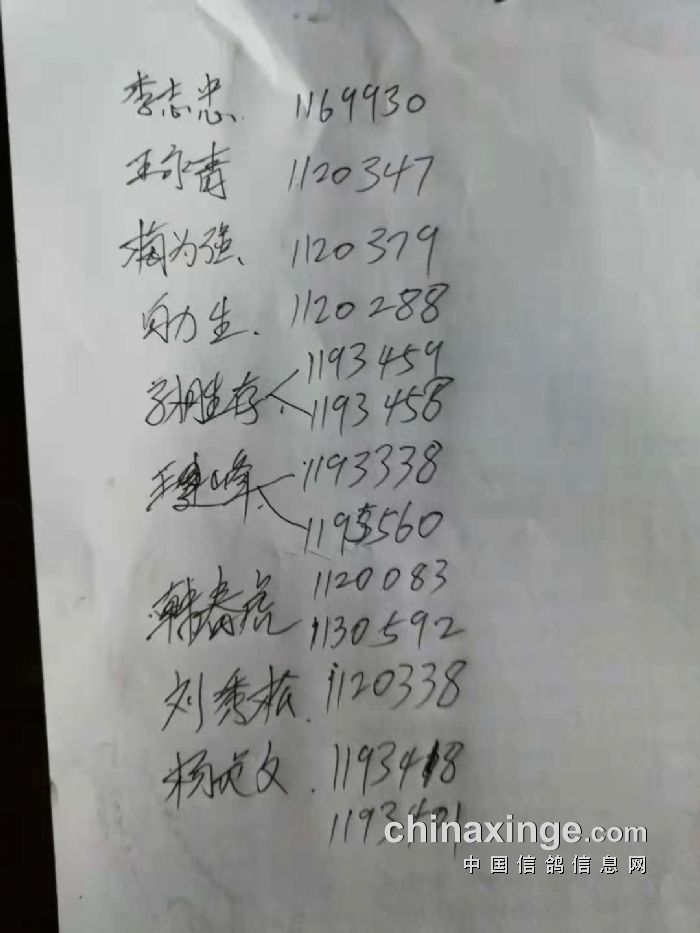 李志忠 1169930
王永青 1120347
梅为强 1120379
白力生 1120288
1193459
孙胜存 1193458
王建峰 1193338
1193560
韩春虎 1120083
1130592
刘秀松 1120338
杨文 1193418
chinaxinge.com
中国信鸽信息网